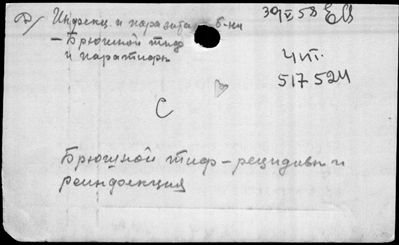 Инфекц. и паразитар. б-ни
- Брюшной тиф
и паратифы
Чит.
517524
С
Брюшной тиф - рецидивы и
реинфекция